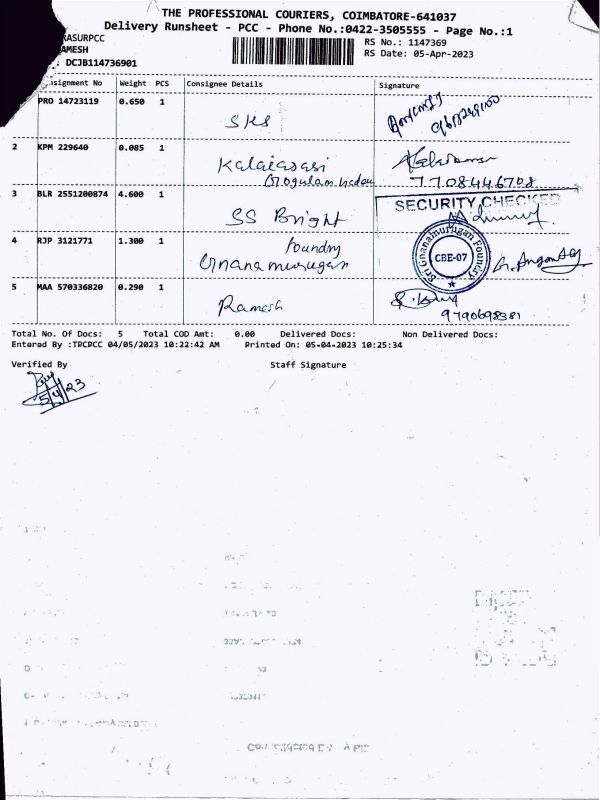 THE PROFESSIONAL COURIERS, COIMBATORE-641037
Delivery Runsheet - PCC - Phone No.:0422-3505555 - Page No.:1
RASURPCC
AMESH
: DCJB114736901
RS No.: 1147369
RS Date: 05-Apr-2023
signment No Weight PCS Consignee Details Signature
PRO 14723119 0.650 1 SKS
2 KPM 229640 0.085 1 Kalaiarasi
7708446708
3 BLR 2551200874 4.600 1 SS Bright SECURITY CHECKED
4 RJP 3121771 1.300 1 Gnanamurugan foundry
Sri Gnanamurugan Foundry
CBE-07
5 MAA 570336820 0.290 1 Ramesh
9790698381
Total No. Of Docs: 5 Total COD Amt: 0.00 Delivered Docs: Non Delivered Docs:
Entered By :TPCPCC 04/05/2023 10:22:42 AM Printed On: 05-04-2023 10:25:34
Verified By Staff Signature
5/4/23